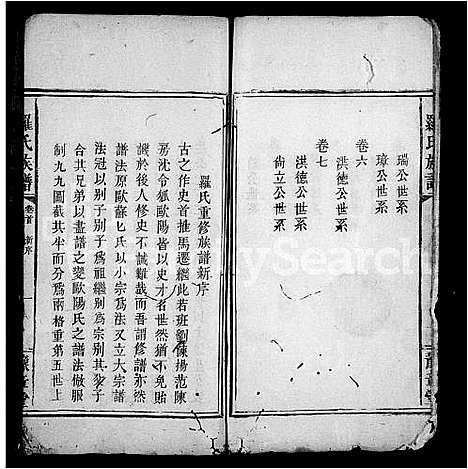 羅氏族譜
瑞公世系
璋公世系
卷六
洪德公世系
卷七
洪德公世系
尙立公世系
羅氏重修族譜新序
古之作史首推馬遷繼此若班劉陳揚范陳
房沈令狐歐陽皆以史才者世然猶不免貽
譏於後人修史不誠難哉而吾謂修譜亦然
譜法原歐蘇七氏以小宗爲法又立大宗譜
法冠以别子别子爲祖繼别爲宗别其分子
合其兄弟以畫譜之變歐陽氏之譜法倣服
制九九圖截其半而分爲兩格重第五世上
羅氏族譜
卷首
新序
豫章堂